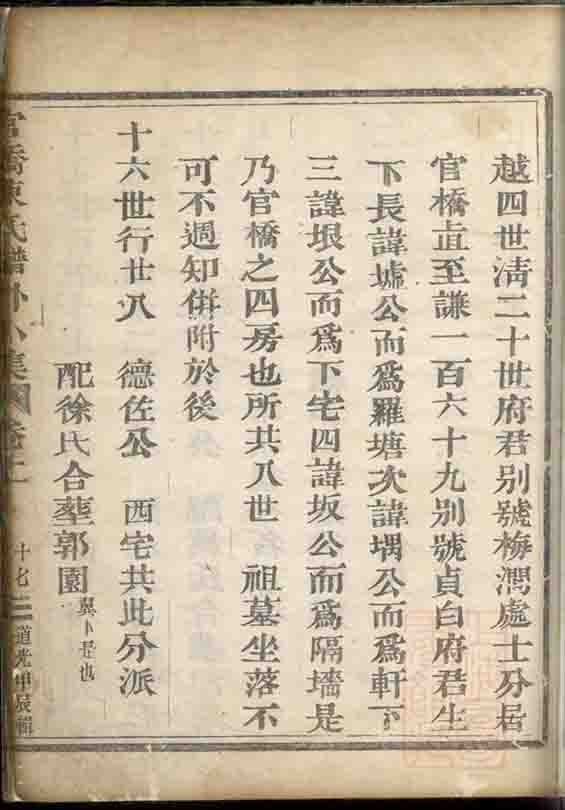 越四世淸二十世府君别號梅澗處士分居
官橋直至謙一百六十九别號貞白府君生
下長諱墟公而爲羅塘次諱堣公而爲軒下
三諱垠公而爲下宅四諱坂公而爲隔墻是
乃官橋之四房也所共八世 祖墓坐落不
可不週知併附於後
十六世行廿八 德佐公 西宅共此分派
配徐氏合塟郭園
是也
官橋陳氏譜外八集
十七
道光甲辰輯